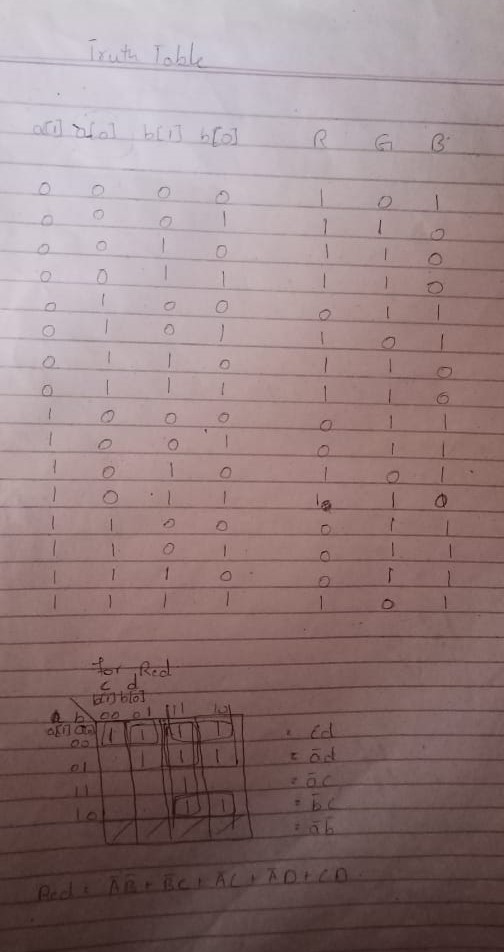 Truth Table
a[1] a[0] b[1] b[0] R G B
0 0 0 0 1 0 1
0 0 0 1 1 1 0
0 0 1 0 1 1 0
0 0 1 1 1 1 0
0 1 0 0 0 1 1
0 1 0 1 1 0 1
0 1 1 0 1 1 0
0 1 1 1 1 1 0
1 0 0 0 0 1 1
1 0 0 1 0 1 1
1 0 1 0 1 0 1
1 0 1 1 1 1 0
1 1 0 0 0 1 1
1 1 0 1 0 1 1
1 1 1 0 0 1 1
1 1 1 1 1 0 1
for Red
c d
b[1] b[0]
a b 00 01 11 10
a[1] a[0]
00 1 1 1 1 = cd
01 1 1 1 = ād
11 1 = āc
10 1 1 = b̄c
= āb̄
Red = ĀB̄ + B̄C + ĀC + ĀD + CD